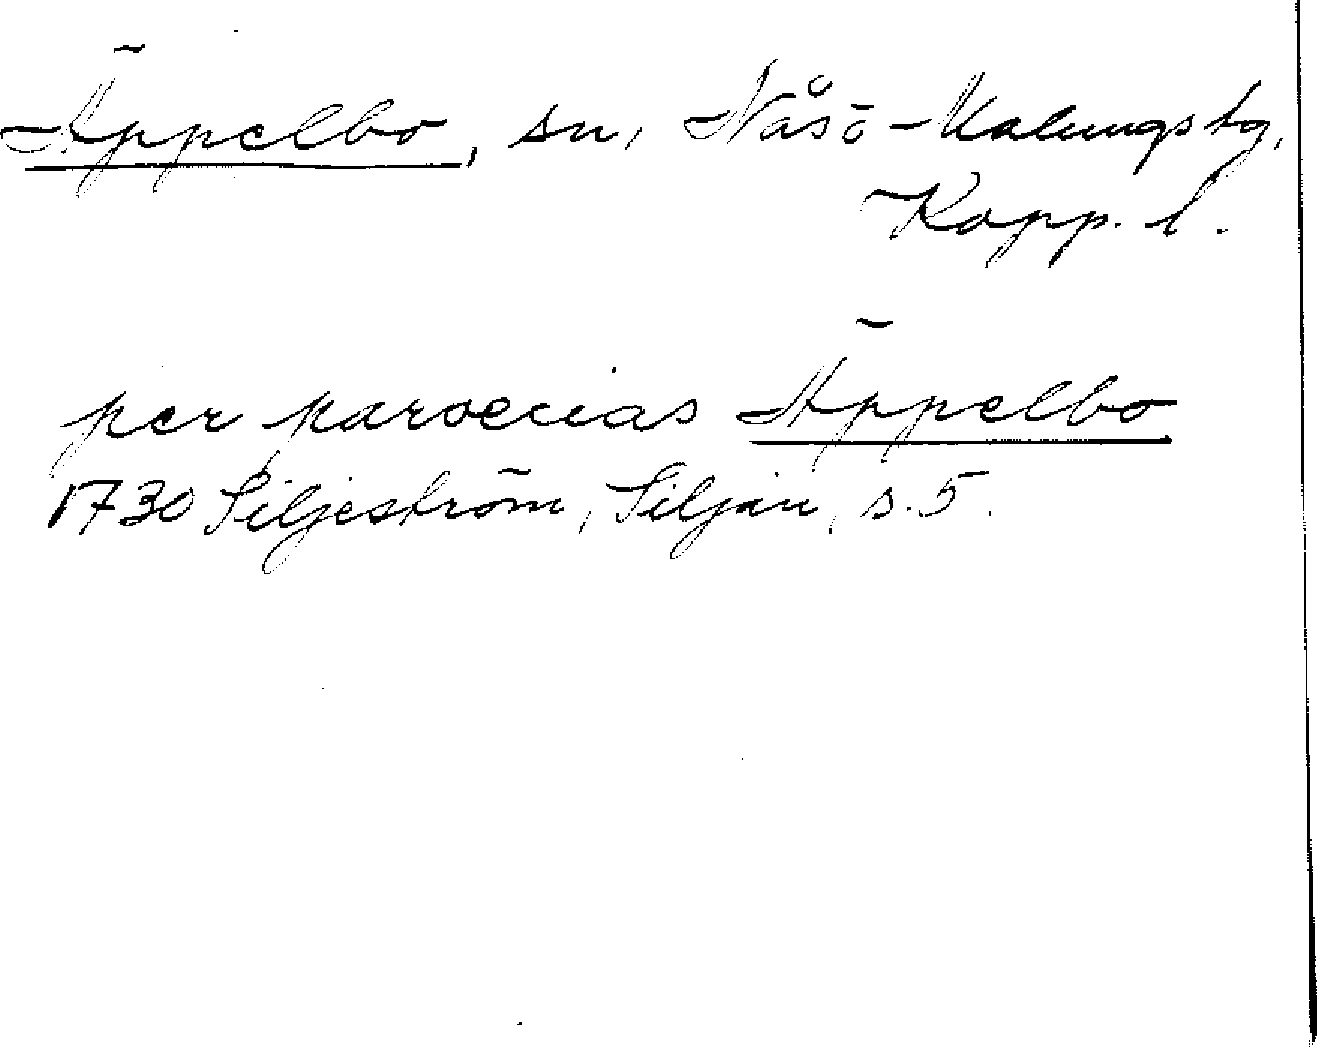 Äppelbo, sn, Nås o-Malungs tg,
Kopp. l.
per paroecias Äppelbo
1730 Siljeström, Siljan, s. 5.